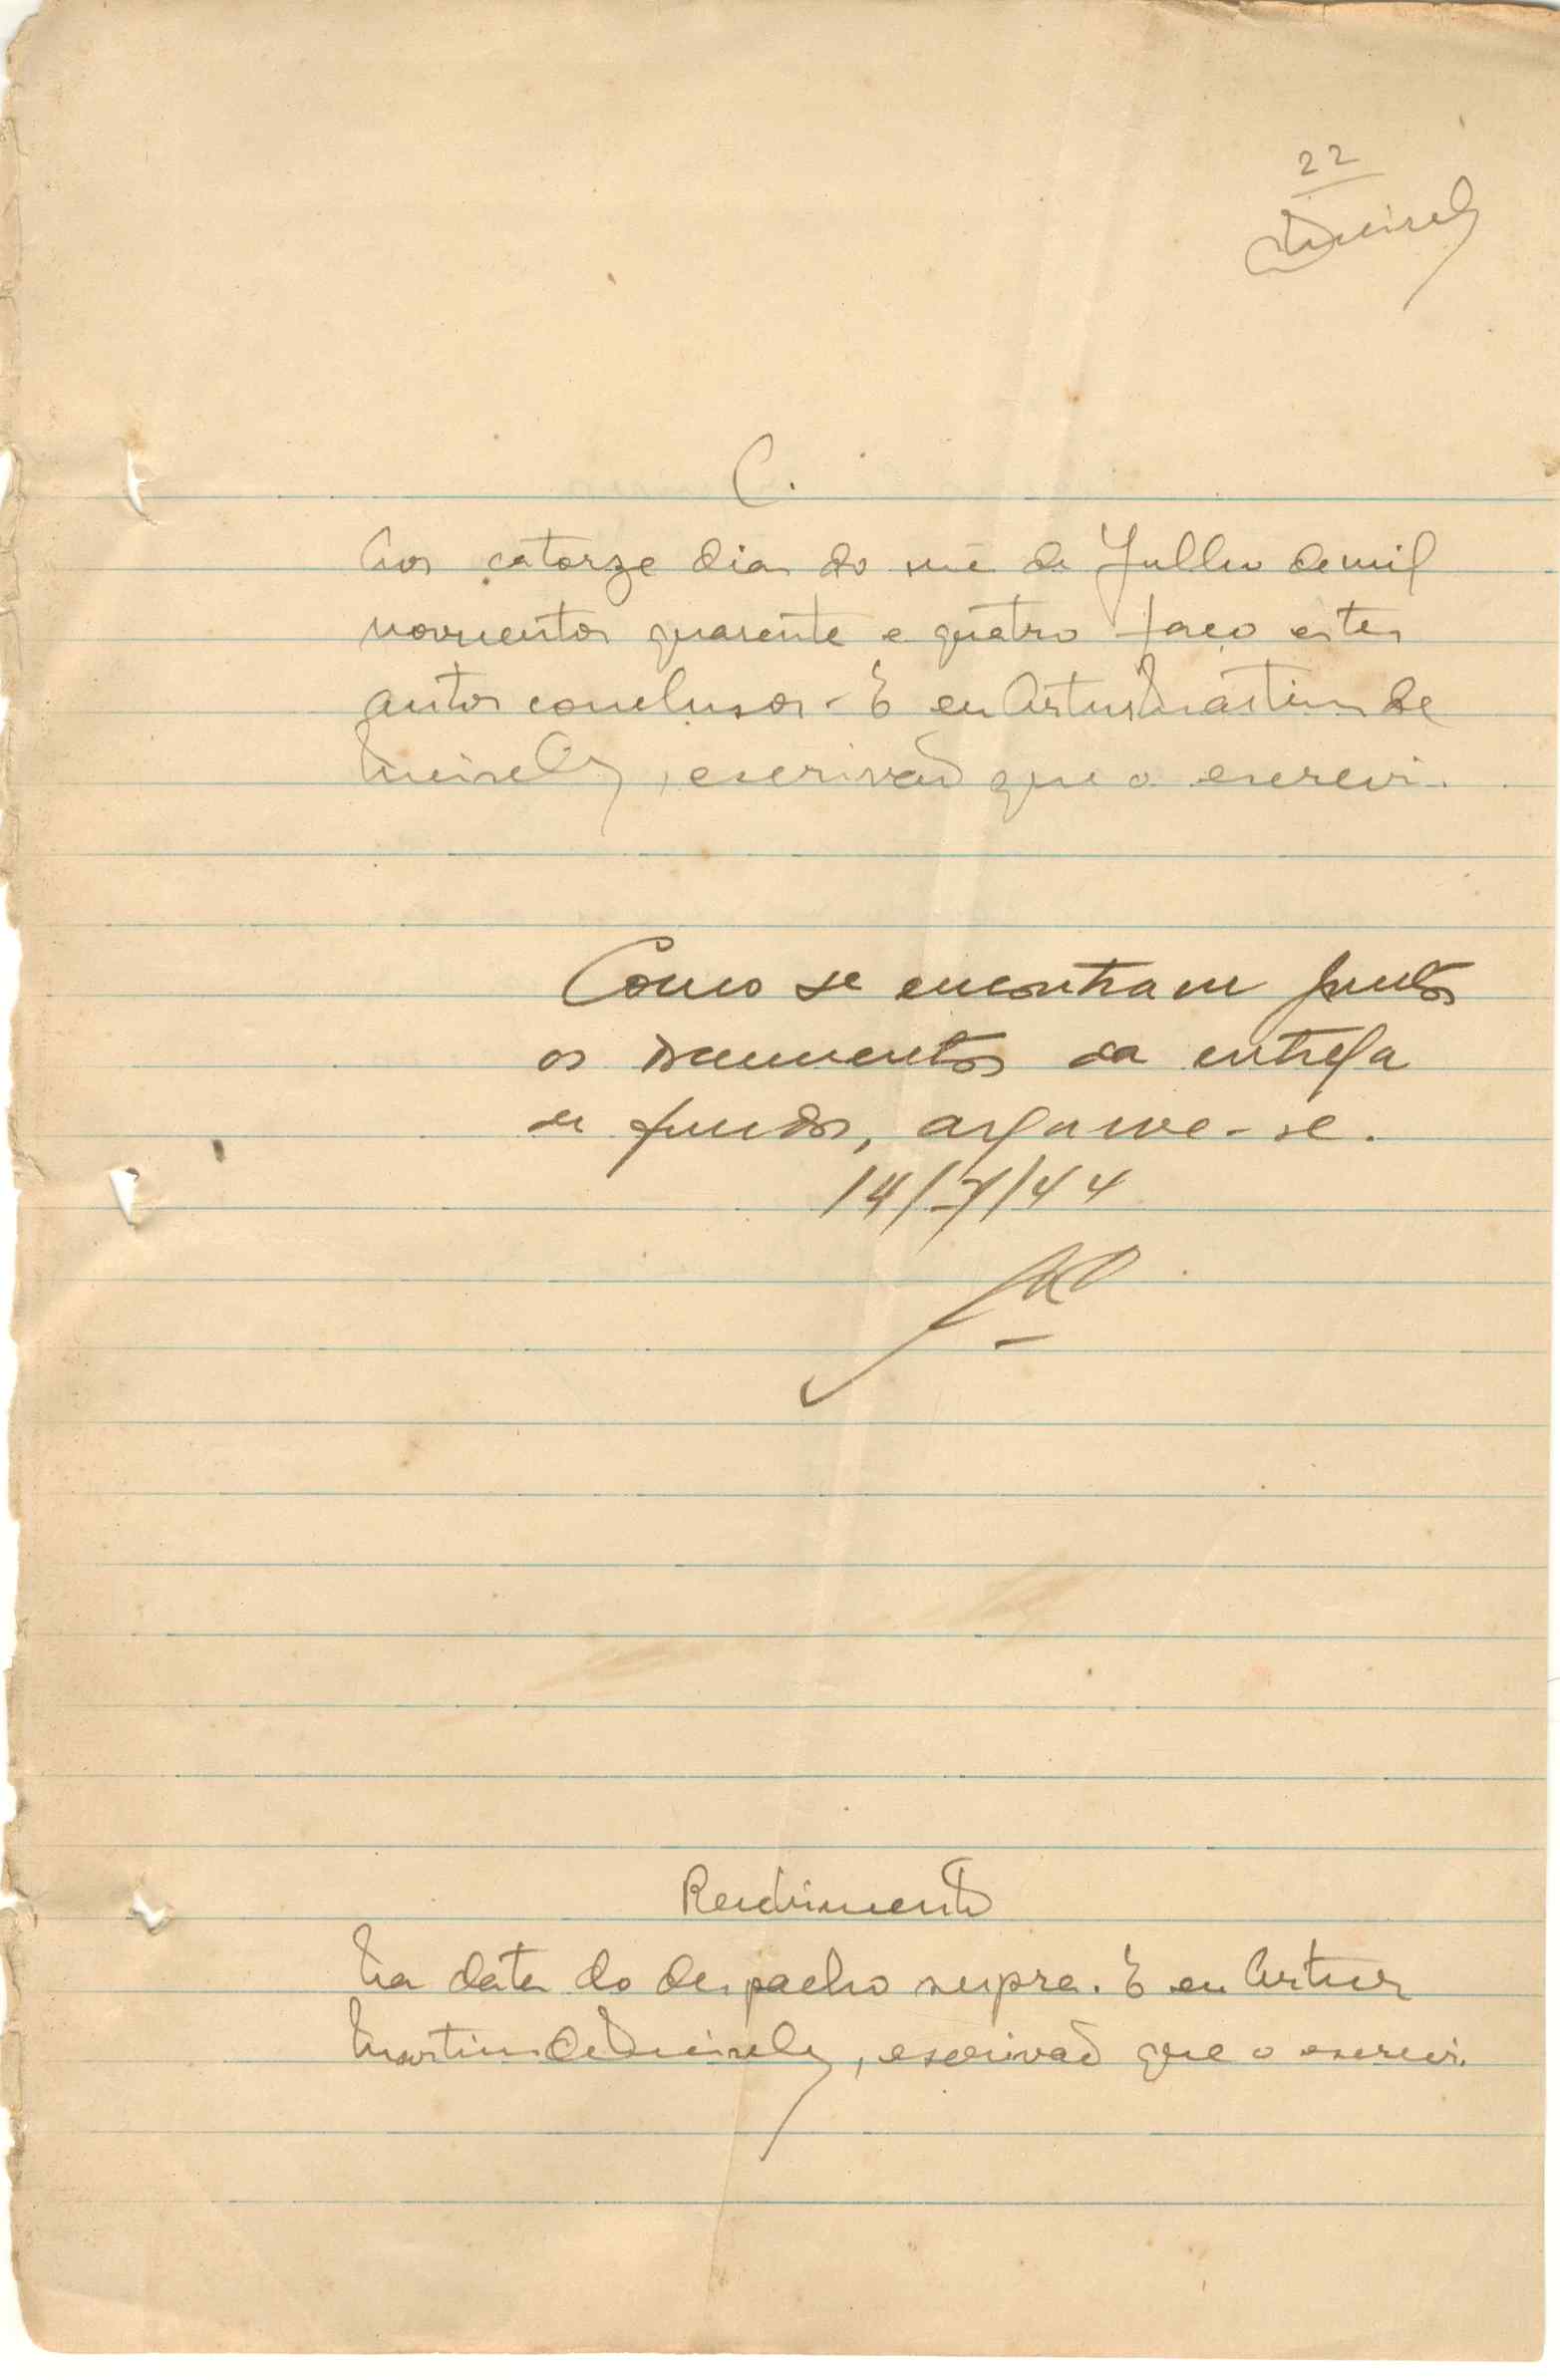 22
C.
Aos catorze dias do mês de Julho de mil
novecentos quarenta e quatro faço estes
autos conclusos - E eu Artur Martins de
, escrivão que o escrevi.
Como se encontram juntos
os documentos da entrega
de fundos, arquive-se.
14/7/44
Recebimento
Na data do despacho supra. E eu Artur
Martins de , escrivão que o escrevi.